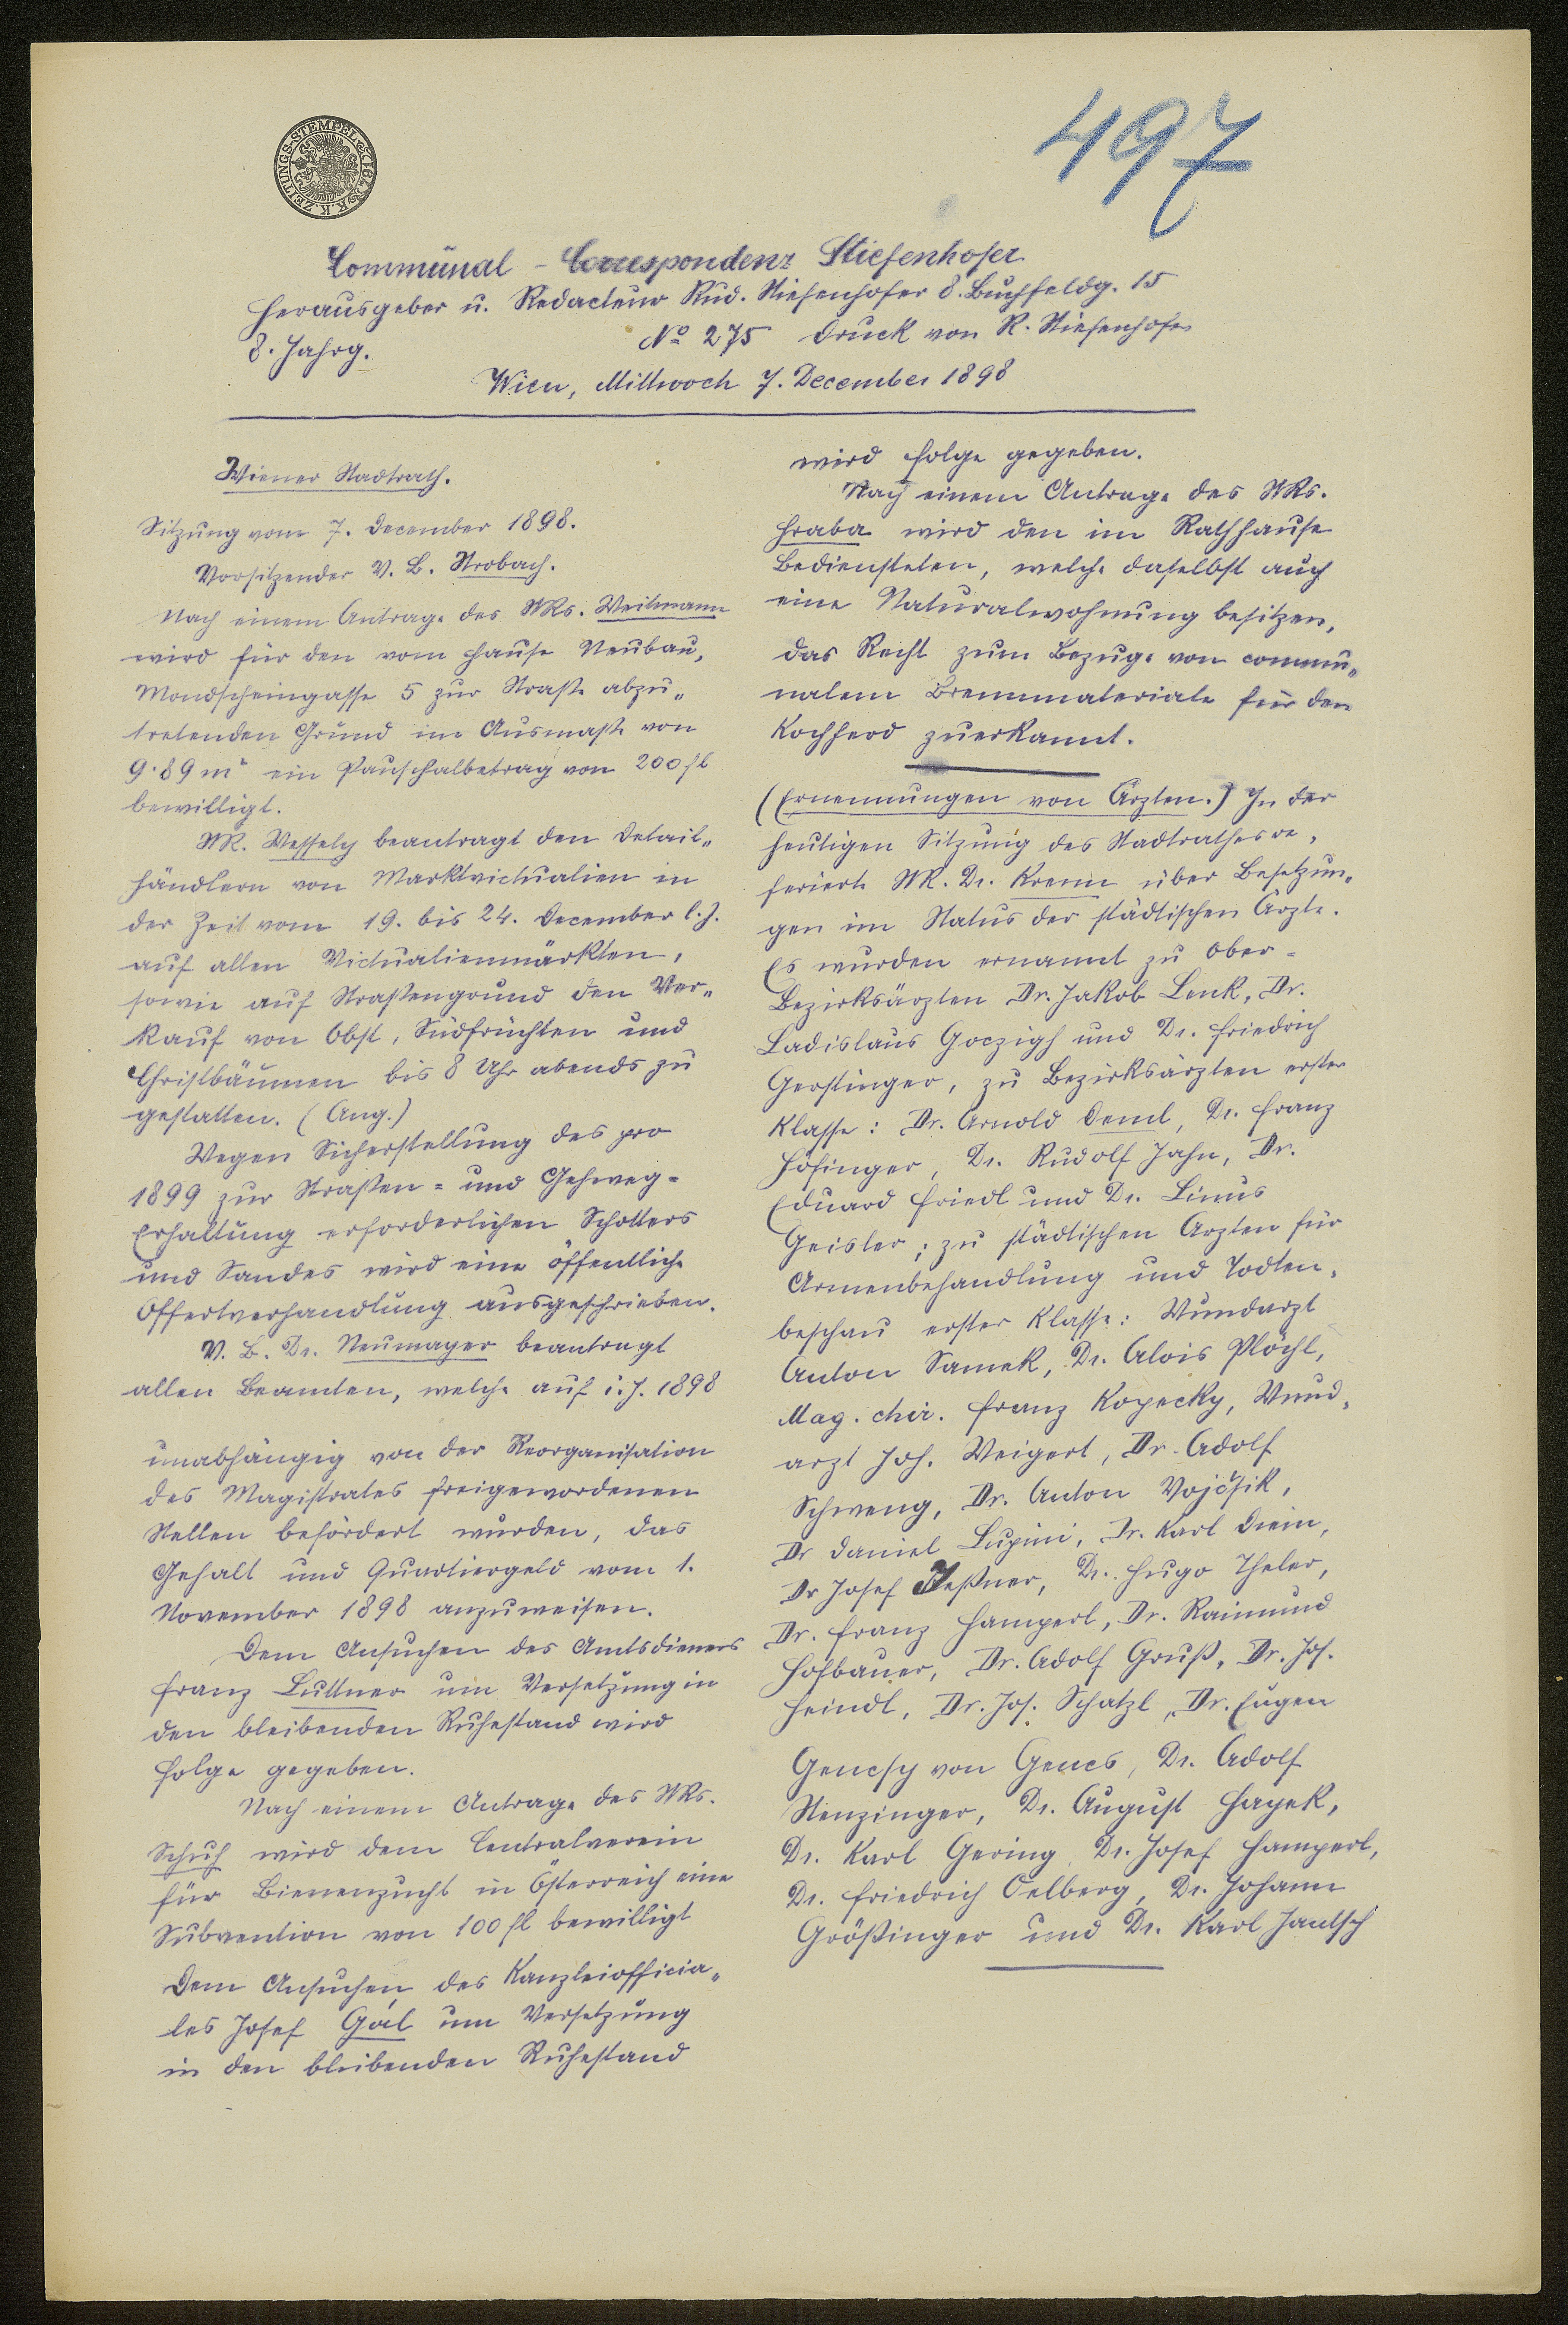 497
K.K. ZEITUNGS-STEMPEL
Communal-Correspondenz Stiefenhofer
Herausgeber u. Redacteur Rud. Stiefenhofer 8. Buchfeldg. 15
8. Jahrg. No 275 Druck von R. Stiefenhofer
Wien, Mittwoch 7. December 1898
Wiener Stadtrath.
Sitzung vom 7. December 1898.
Vorsitzender V. B. Strobach.
Nach einem Antrage des StRs. Weitmann
wird für den vom Hause Neubau,
Mondscheingasse 5 zur Straße abzu„
tretenden Grund im Ausmaße von
9·89 m² ein Pauschalbetrag von 200 fl
bewilligt.
StR. Wessely beantragt den Detail„
händlern von Marktvictualien in
der Zeit vom 19. bis 24. December l. J.
auf allen Victualienmärkten,
sowie auf Straßengrund den Ver„
kauf von Obst, Südfrüchten und
Christbäumen bis 8 Uhr abends zu
gestatten. (Ang.)
Wegen Sicherstellung des pro
1899 zur Straßen- und Gehweg-
Erhaltung erforderlichen Schotters
und Sandes wird eine öffentliche
Offertverhandlung ausgeschrieben.
V. B. Dr. Neumayer beantragt
allen Beamten, welche auf i. J. 1898
unabhängig von der Reorganisation
des Magistrates freigewordenen
Stellen befördert wurden, das
Gehalt und Quartiergeld vom 1.
November 1898 anzuweisen.
Dem Ansuchen des Amtsdieners
Franz Luttner um Versetzung in
den bleibenden Ruhestand wird
Folge gegeben.
Nach einem Antrage des StRs.
Schuh wird dem Centralverein
für Bienenzucht in Österreich eine
Subvention von 100 fl bewilligt
Dem Ansuchen des Kanzleiofficia„
les Josef Gál um Versetzung
in den bleibenden Ruhestand
wird Folge gegeben.
Nach einem Antrage des StRs.
Hraba wird den im Rathhause
Bediensteten, welche daselbst auch
eine Naturalwohnung besitzen,
das Recht zum Bezuge von commu„
nalem Brennmateriale für den
Kochherd zuerkannt.
(Ernennungen von Ärzten.) In der
heutigen Sitzung des Stadtrathes re„
ferierte StR. Dr. Krenn über Besetzun„
gen im Status der städtischen Ärzte.
Es wurden ernannt zu Ober-
Bezirksärzten Dr. Jakob Lenk, Dr.
Ladislaus Goczigh und Dr. Friedrich
Gerstinger, zu Bezirksärzten erster
Klasse: Dr. Arnold Deml, Dr. Franz
Höfinger, Dr. Rudolf Jahn, Dr.
Eduard Friedl und Dr. Linus
Geisler; zu städtischen Ärzten für
Armenbehandlung und Todten„
beschau erster Klasse: Wundarzt
Anton Samek, Dr. Alois Plöchl,
Mag. chir. Franz Kopecky, Wund„
arzt Joh. Weigert, Dr. Adolf
Schweng, Dr. Anton Vojčsik,
Dr Daniel Lupini, Dr. Karl Diein,
Dr Josef Jeßner, Dr. Hugo Theler,
Dr. Franz Hamperl, Dr. Raimund
Hofbauer, Dr. Adolf Gruß, Dr. Jos.
Heindl, Dr. Jos. Schatzl, Dr. Eugen
Gencsy von Gencs, Dr. Adolf
Stenzinger, Dr. August Hayek,
Dr. Karl Gering, Dr. Josef Hamperl,
Dr. Friedrich Oelberg, Dr. Johann
Größinger und Dr. Karl Jantsch